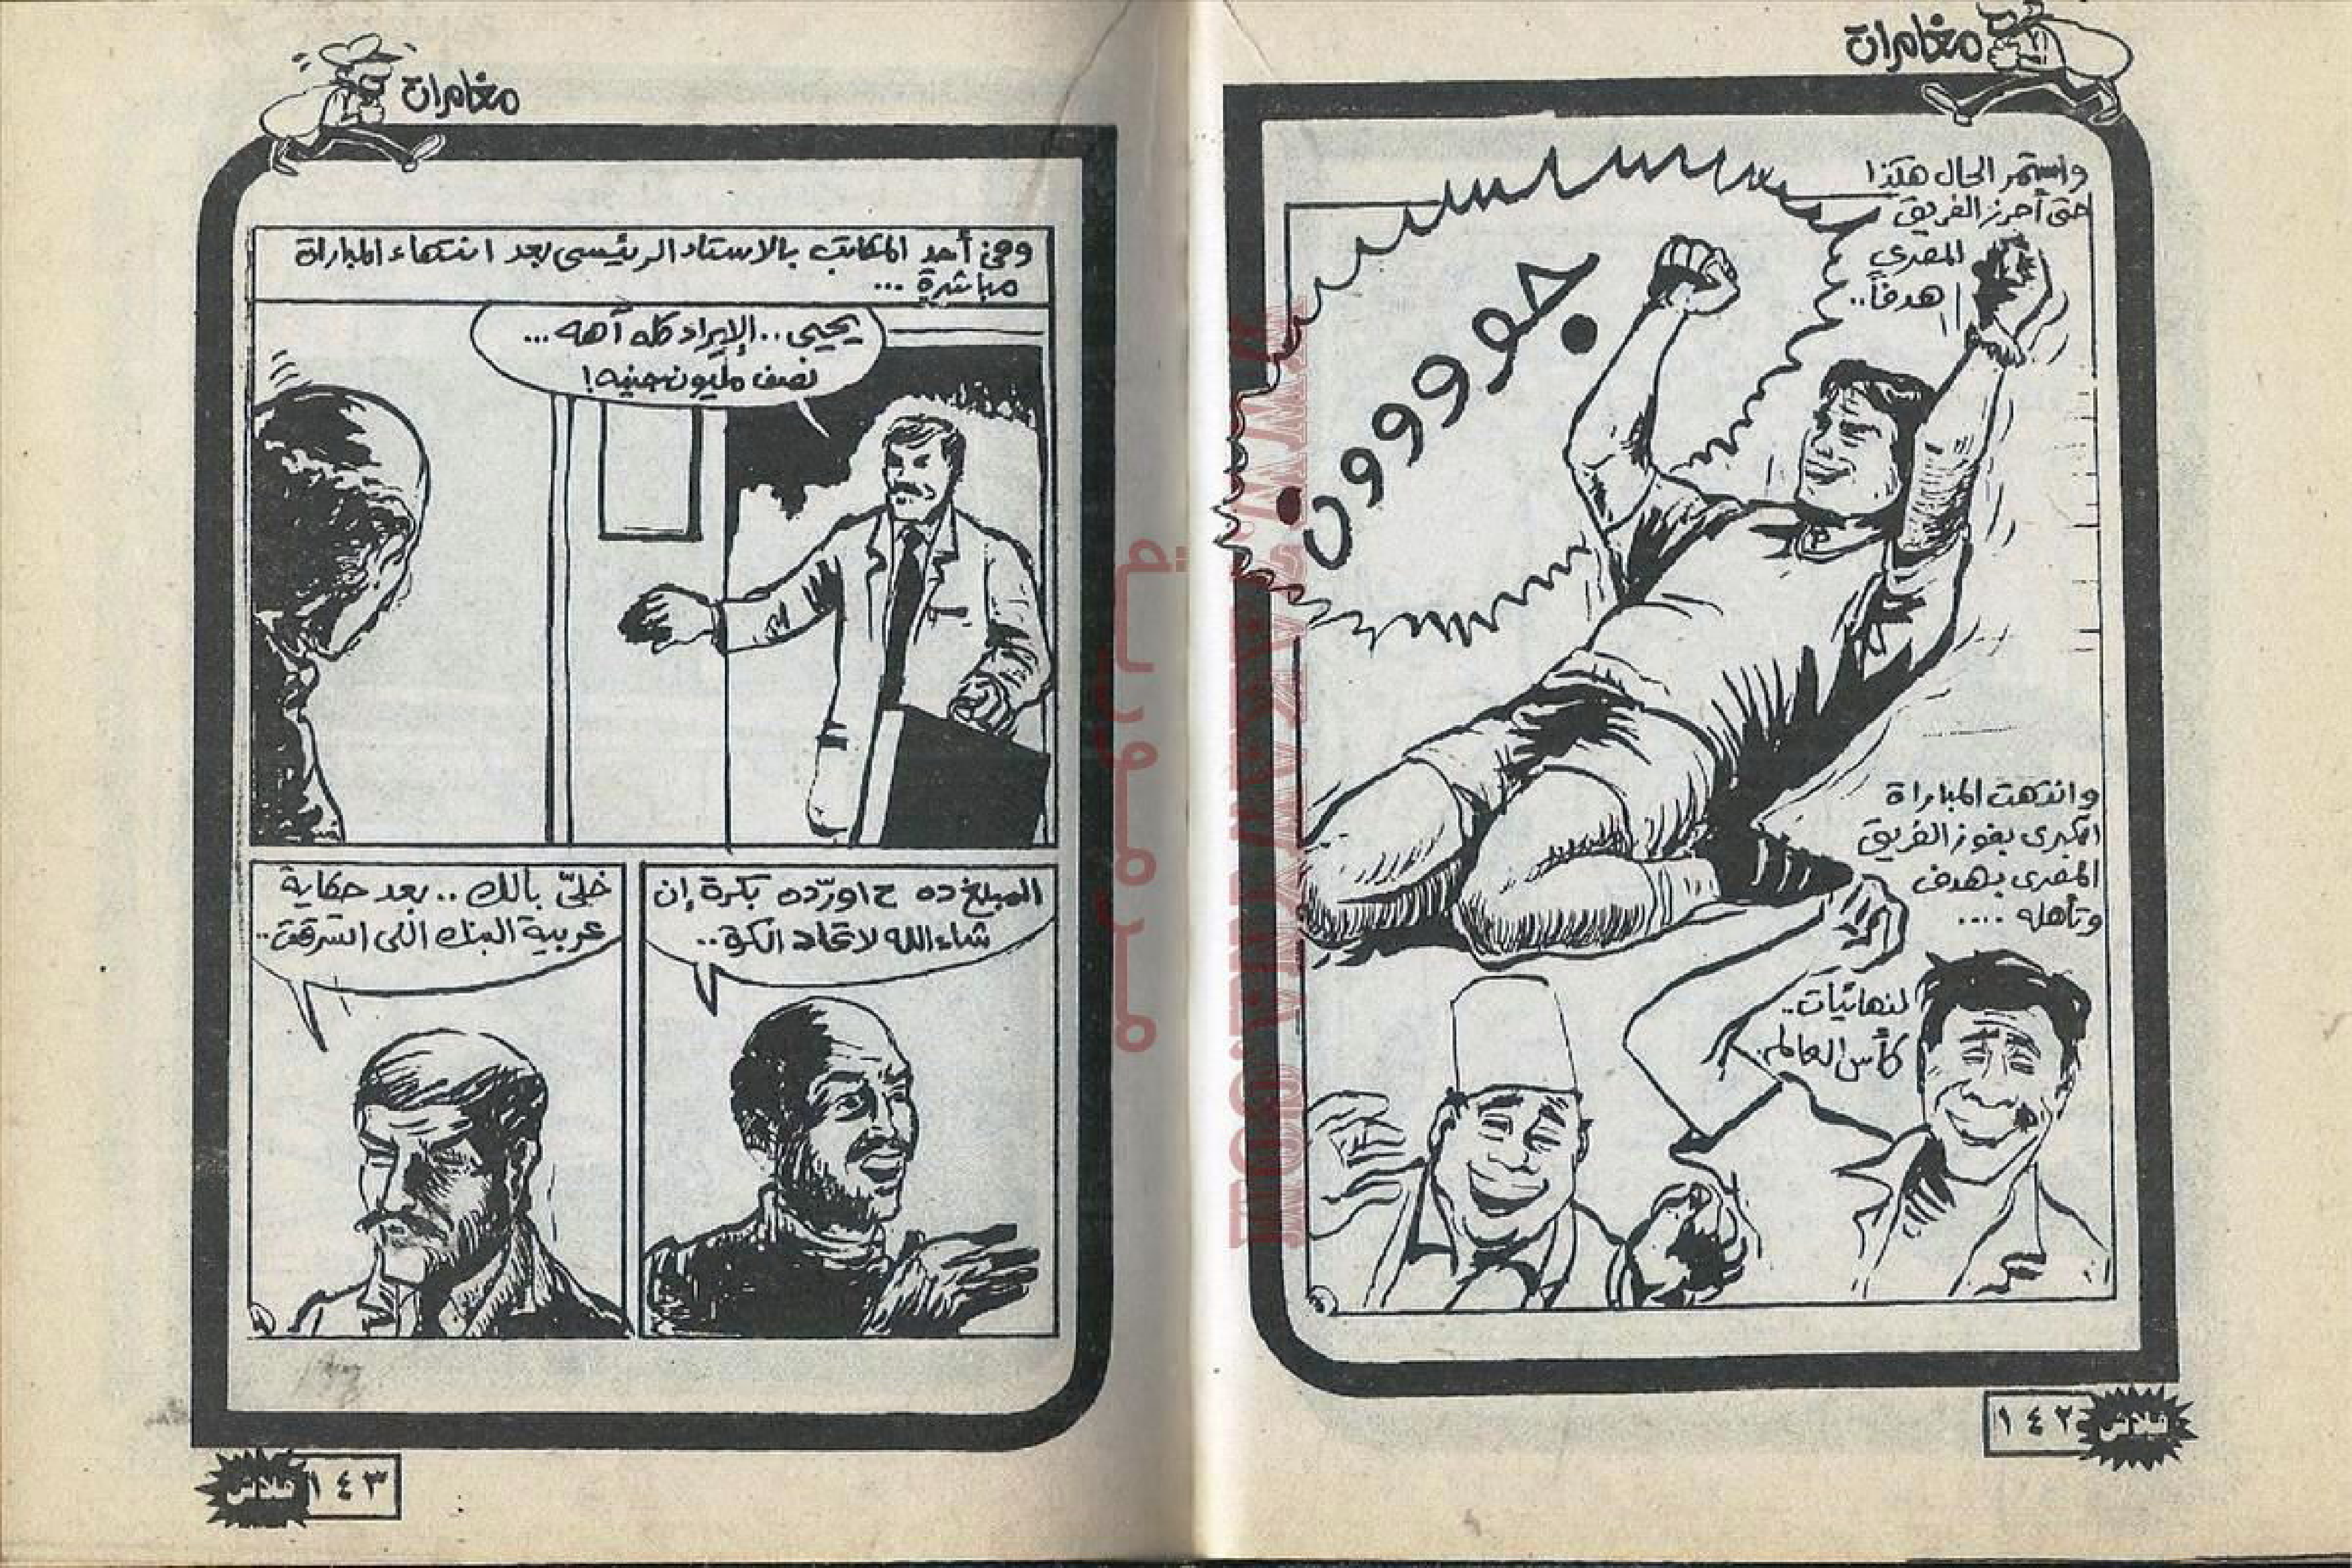 مغامرات
واستمر الحال هكذا
حتى أحرز الفريق
المصري
هدفاً..
جوووون
وانتهت المباراة
الكبرى بفوز الفريق
المصرى بهدف
وتأهله ....
لنهائيات..
كأس العالم.
فلاش
١٤٢
مغامرات
وفى أحد المكاتب بالاستاد الرئيسى بعد انتهاء المباراة
مباشرة ...
يحيى.. الإيراد كله أهه ...
نصف مليون جنيه!
المبلغ ده ح اورّده بكرة إن
شاء الله لاتحاد الكرة..
خلىّ بالك .. بعد حكاية
عربية البنك اللى اتسرقت..
١٤٣
فلاش